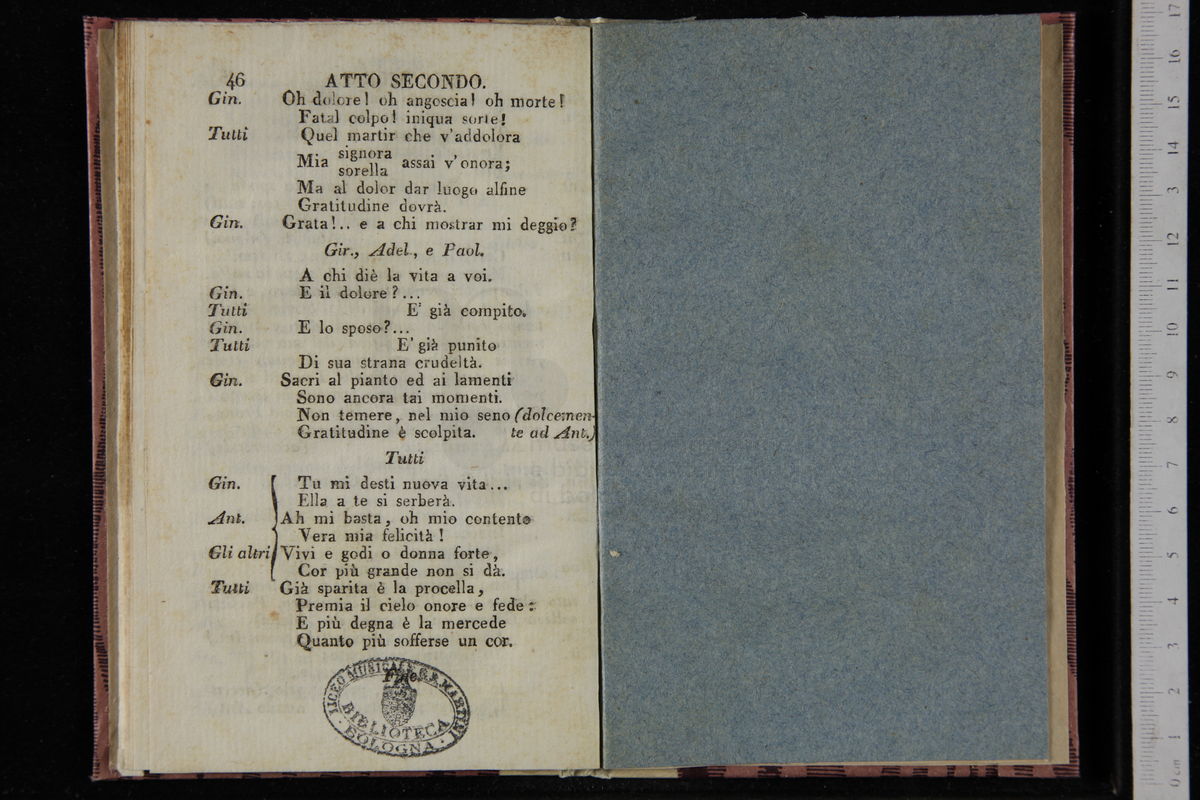 46 ATTO SECONDO.
Gin. Oh dolore! oh angoscia! oh morte!
Fatal colpo! iniqua sorte!
Tutti Quel martir che v'addolora
Mia signora sorella assai v'onora;
Ma al dolor dar luogo alfine
Gratitudine dovrà.
Gin. Grata!.. e a chi mostrar mi deggio?
Gir., Adel., e Paol.
A chi diè la vita a voi.
Gin. E il dolore?...
Tutti E' già compito.
Gin. E lo sposo?...
Tutti E' già punito
Di sua strana crudeltà.
Gin. Sacri al pianto ed ai lamenti
Sono ancora tai momenti.
Non temere, nel mio seno (dolcemen-
Gratitudine è scolpita. te ad Ant.)
Tutti
Gin. Tu mi desti nuova vita...
Ella a te si serberà.
Ant. Ah mi basta, oh mio contento
Vera mia felicità!
Gli altri Vivi e godi o donna forte,
Cor più grande non si dà.
Tutti Già sparita è la procella,
Premia il cielo onore e fede:
E più degna è la mercede
Quanto più sofferse un cor.
Fine.
LICEO MUSICALE G. B. MARTINI
BIBLIOTECA
BOLOGNA
0 cm 1 2 3 4 5 6 7 8 9 10 11 12 13 14 15 16 17